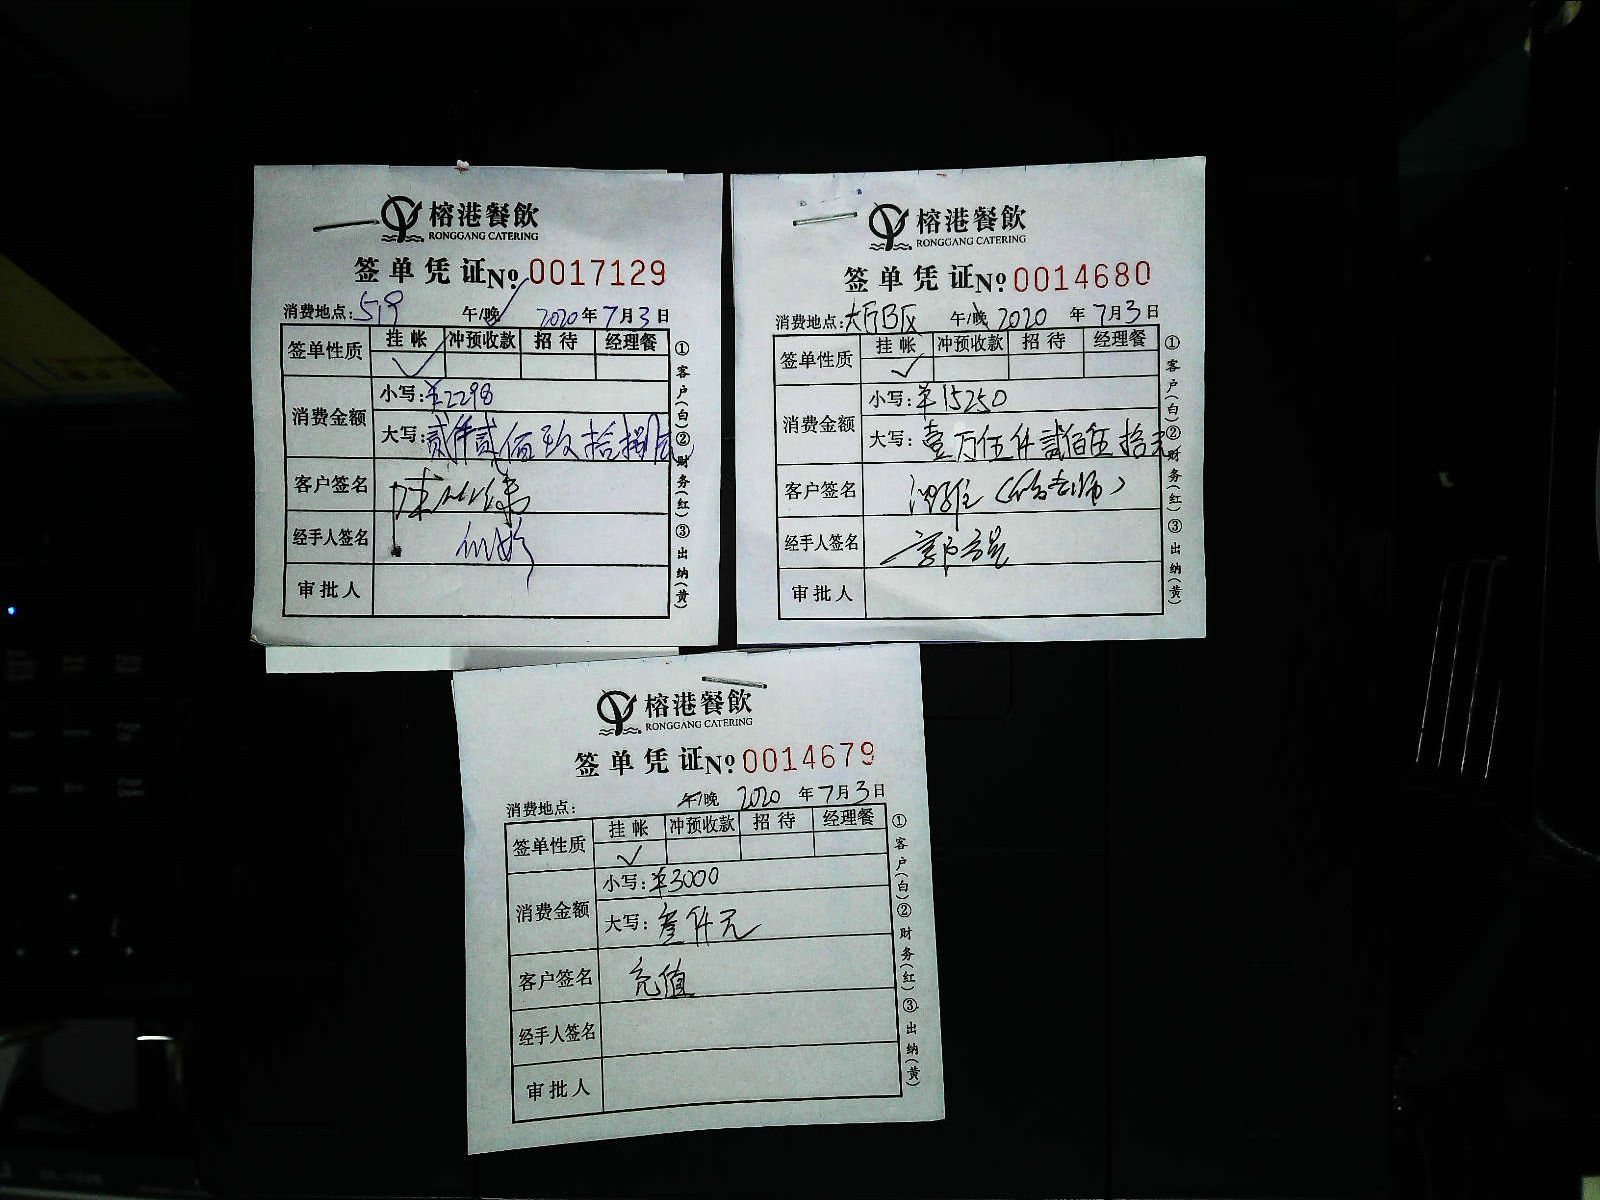 榕港餐飲
RONGGANG CATERING
签单凭证 № 0017129
消费地点: 519 午/晚 2020年7月3日
签单性质 挂帐 冲预收款 招待 经理餐
消费金额
小写:¥2298
大写:贰仟贰佰玖拾捌元
客户签名
经手人签名
审批人
①客户(白)②财务(红)③出纳(黄)
榕港餐飲
RONGGANG CATERING
签单凭证 № 0014680
消费地点:大厅B区 午/晚 2020年7月3日
签单性质 挂帐 冲预收款 招待 经理餐
消费金额
小写:¥15250
大写:壹万伍仟贰佰伍拾元
客户签名
经手人签名
审批人
①客户(白)②财务(红)③出纳(黄)
榕港餐飲
RONGGANG CATERING
签单凭证 № 0014679
消费地点: 午/晚 2020年7月3日
签单性质 挂帐 冲预收款 招待 经理餐
消费金额
小写:¥3000
大写:叁仟元
客户签名 充值
经手人签名
审批人
①客户(白)②财务(红)③出纳(黄)